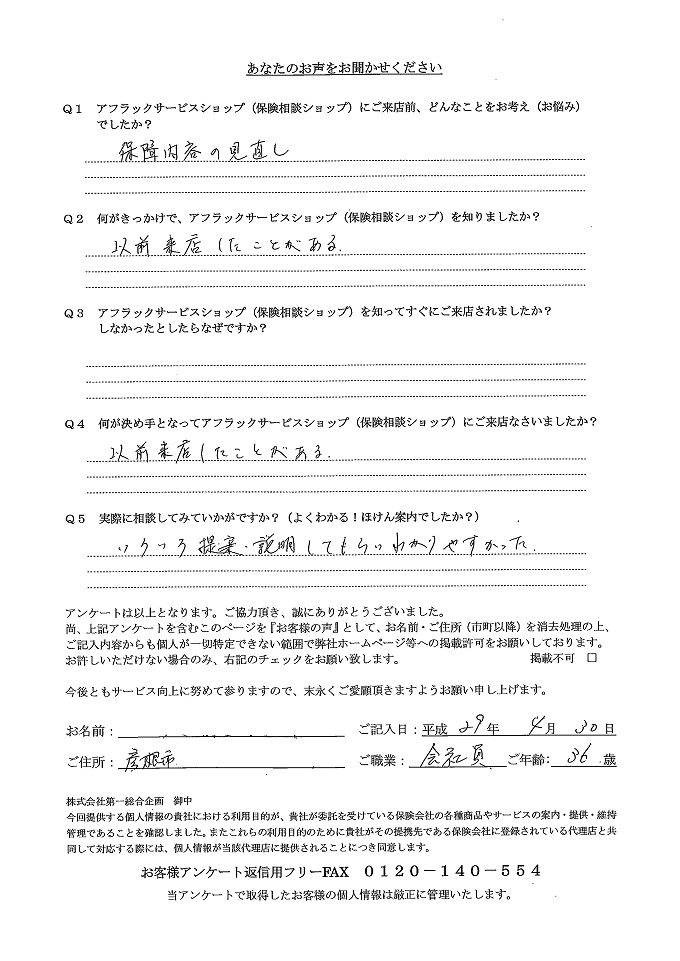 あなたのお声をお聞かせください
Q1 アフラックサービスショップ（保険相談ショップ）にご来店前、どんなことをお考え（お悩み）
でしたか？
保障内容の見直し
Q2 何がきっかけで、アフラックサービスショップ（保険相談ショップ）を知りましたか？
以前来店したことがある.
Q3 アフラックサービスショップ（保険相談ショップ）を知ってすぐにご来店されましたか？
しなかったとしたらなぜですか？
Q4 何が決め手となってアフラックサービスショップ（保険相談ショップ）にご来店なさいましたか？
以前来店したことがある.
Q5 実際に相談してみていかがですか？（よくわかる！ほけん案内でしたか？）
いろいろ提案・説明してもらいわかりやすかった.
アンケートは以上となります。ご協力頂き、誠にありがとうございました。
尚、上記アンケートを含むこのページを『お客様の声』として、お名前・ご住所（市町以降）を消去処理の上、
ご記入内容からも個人が一切特定できない範囲で弊社ホームページ等への掲載許可をお願いしております。
お許しいただけない場合のみ、右記のチェックをお願い致します。 掲載不可 □
今後ともサービス向上に努めて参りますので、末永くご愛顧頂きますようお願い申し上げます。
お名前： ご記入日：平成 29年 4月 30日
ご住所：彦根市 ご職業：会社員 ご年齢：36歳
株式会社第一総合企画 御中
今回提供する個人情報の貴社における利用目的が、貴社が委託を受けている保険会社の各種商品やサービスの案内・提供・維持
管理であることを確認しました。またこれらの利用目的のために貴社がその提携先である保険会社に登録されている代理店と共
同して対応する際には、個人情報が当該代理店に提供されることにつき同意します。
お客様アンケート返信用フリーFAX ０１２０－１４０－５５４
当アンケートで取得したお客様の個人情報は厳正に管理いたします。